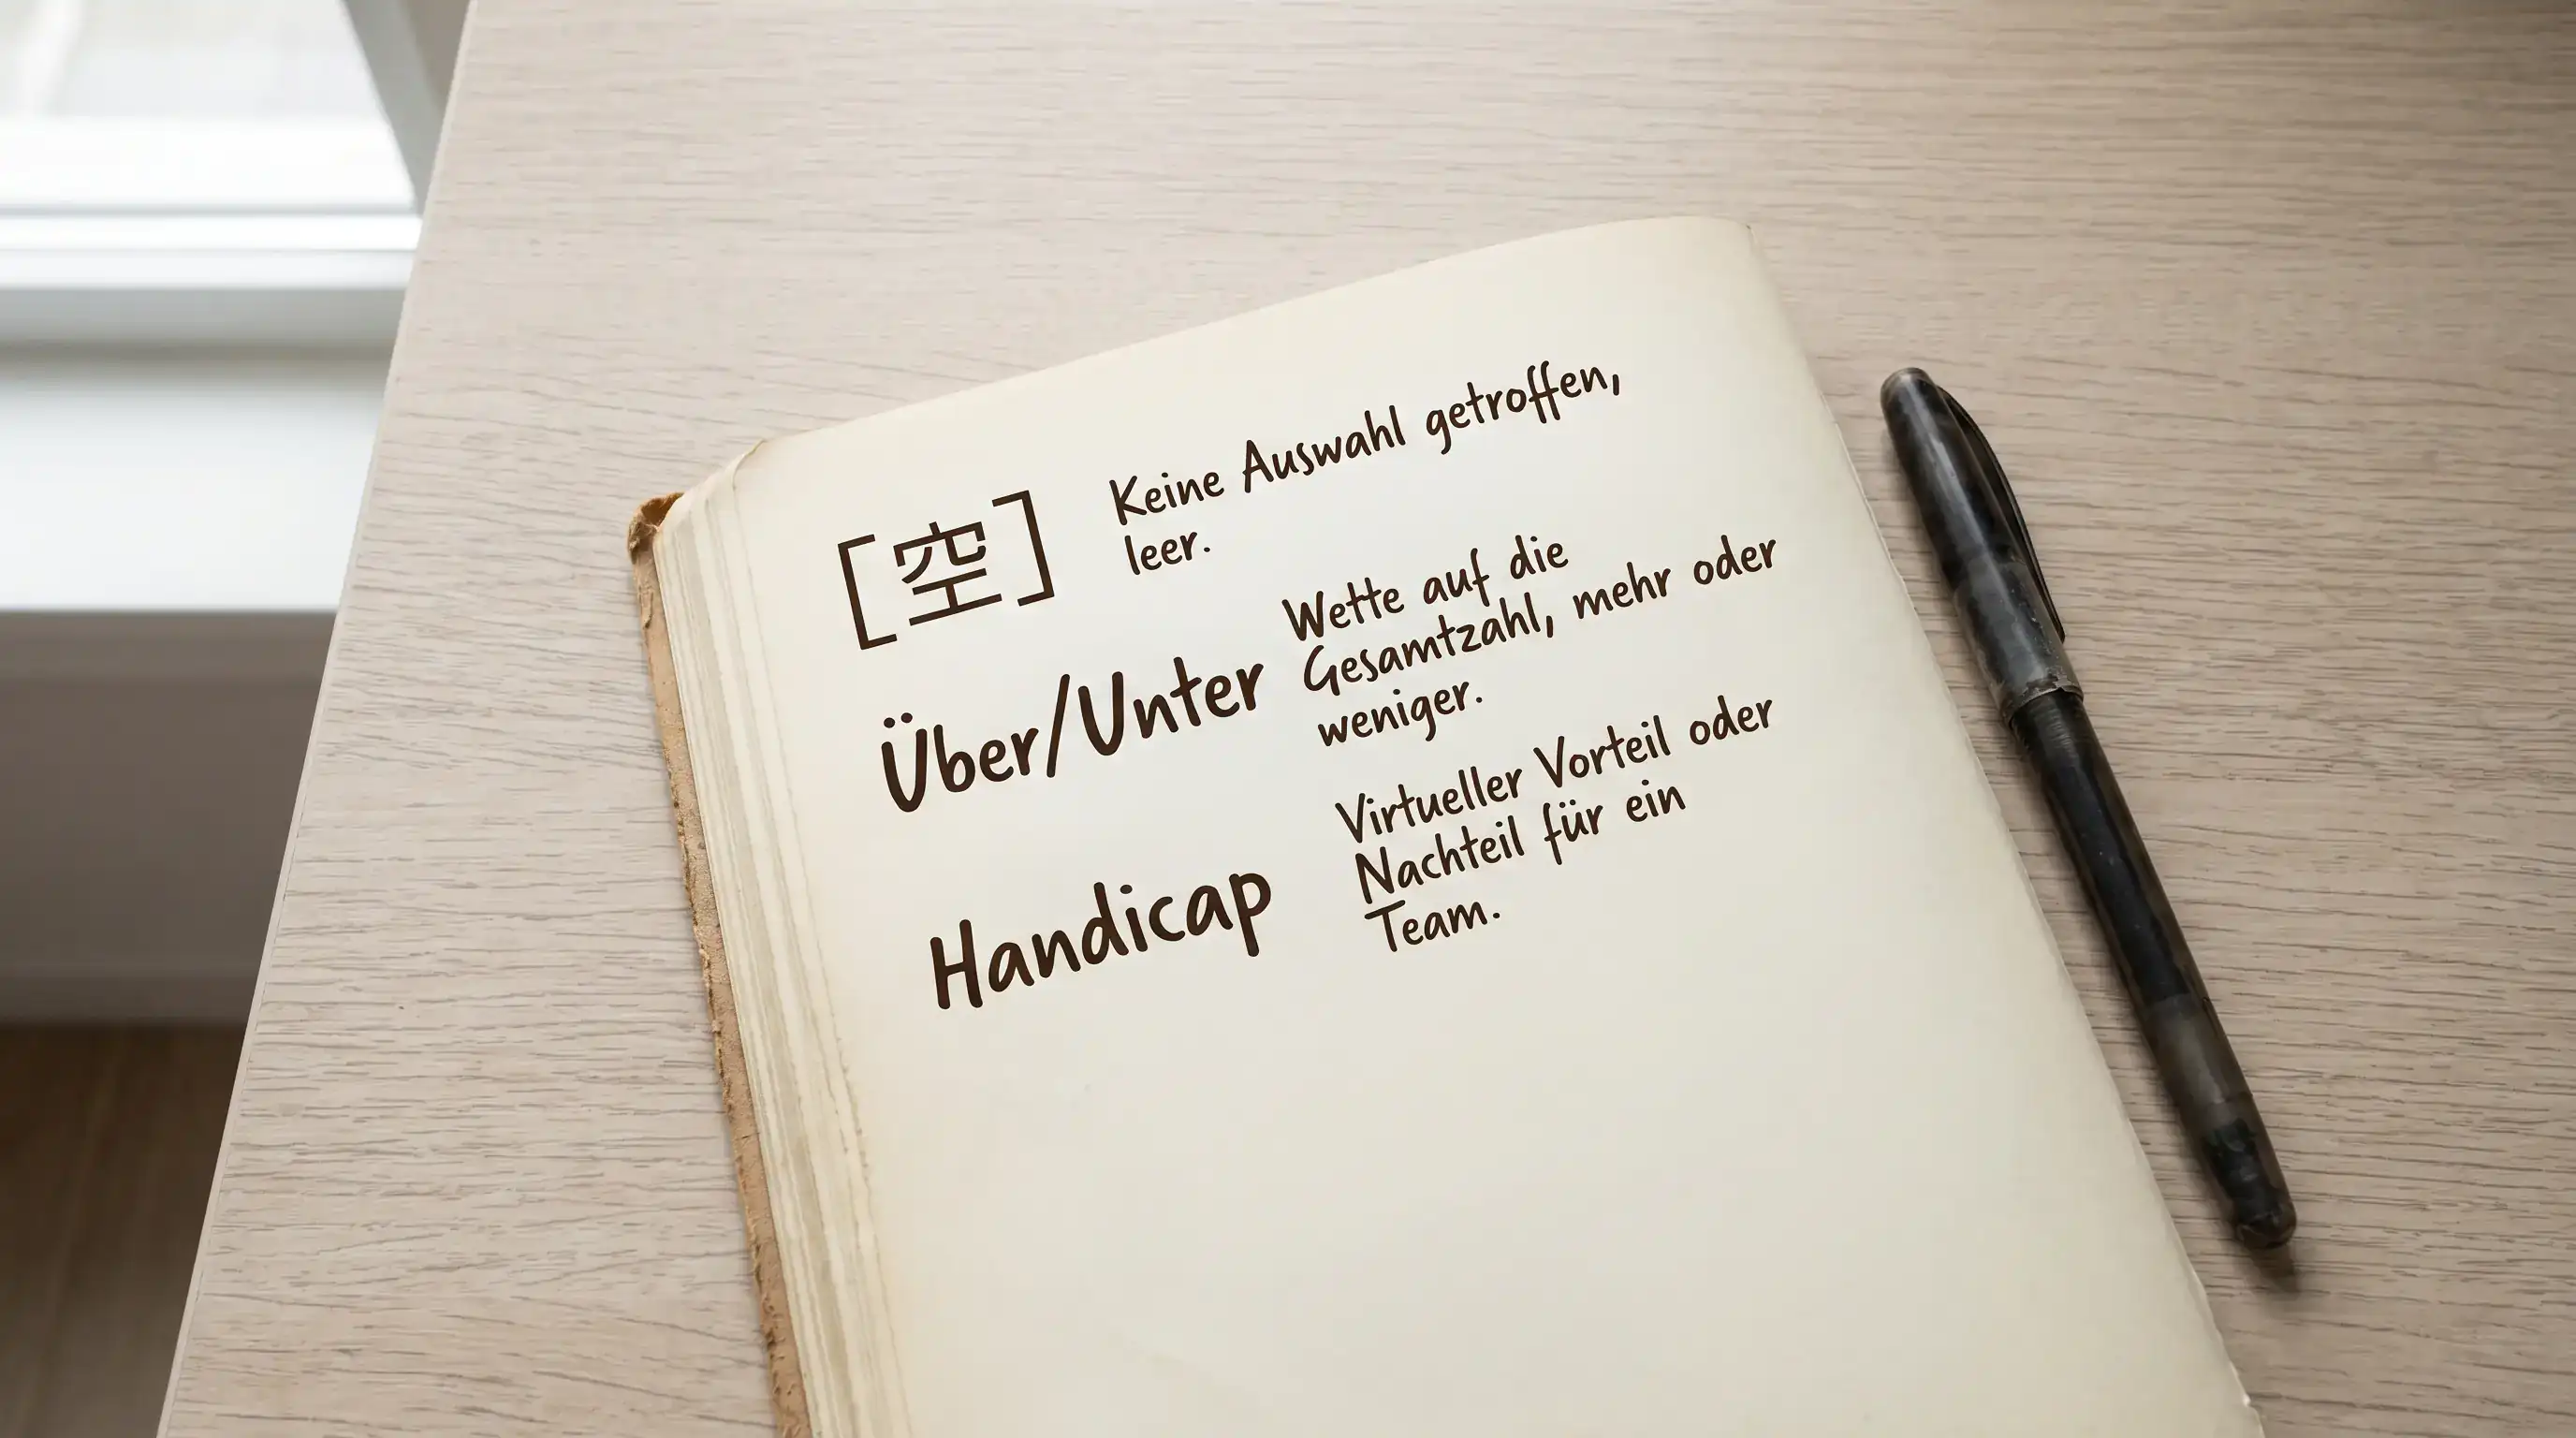 [空] Keine Auswahl getroffen,
leer.
Über/Unter Wette auf die
Gesamtzahl, mehr oder
weniger.
Handicap Virtueller Vorteil oder
Nachteil für ein
Team.